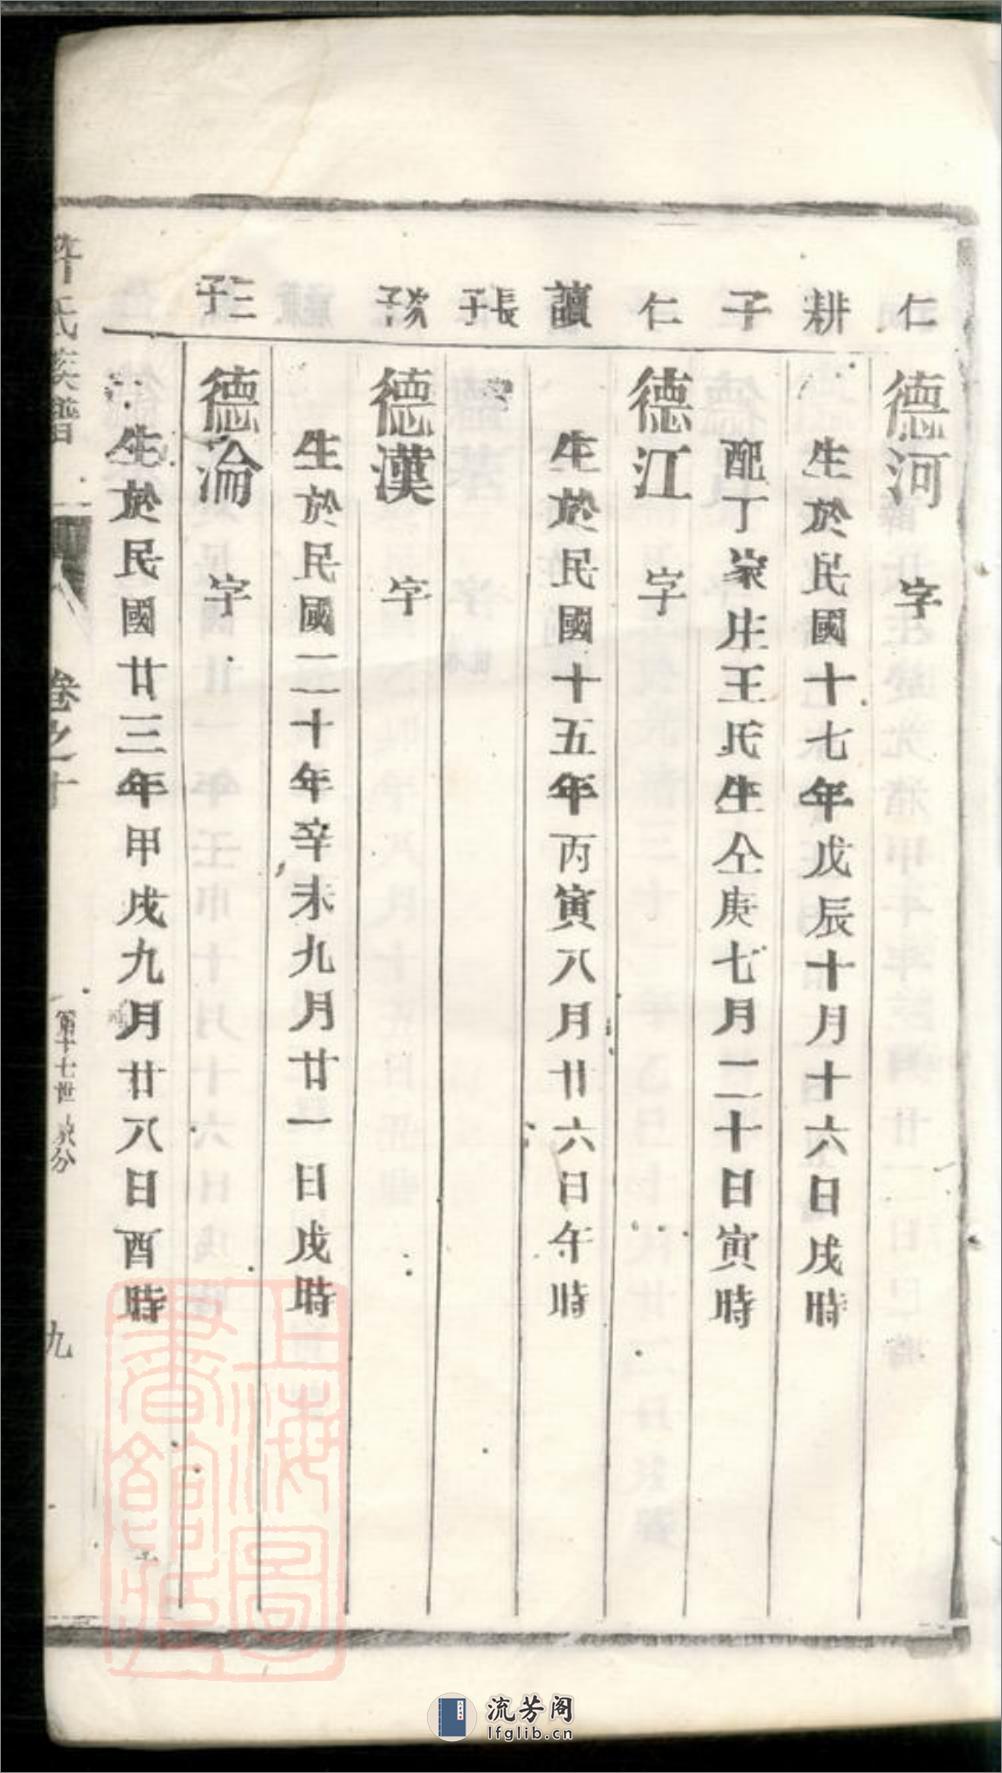 仁
德河 字
耕
生於民國十七年戊辰十月十六日戌時
子
配丁家庄王氏生仝庚七月二十日寅時
仁
德江 字
讀
生於民國十五年丙寅八月廿六日午時
長子
次子
德漢 字
生於民國二十年辛未九月廿一日戌時
三子
德淪 字
生於民國廿三年甲戌九月廿八日酉時
許氏族譜
卷之十
第十七世 長分
九
上海圖書館藏
流芳阁
lfglib.cn